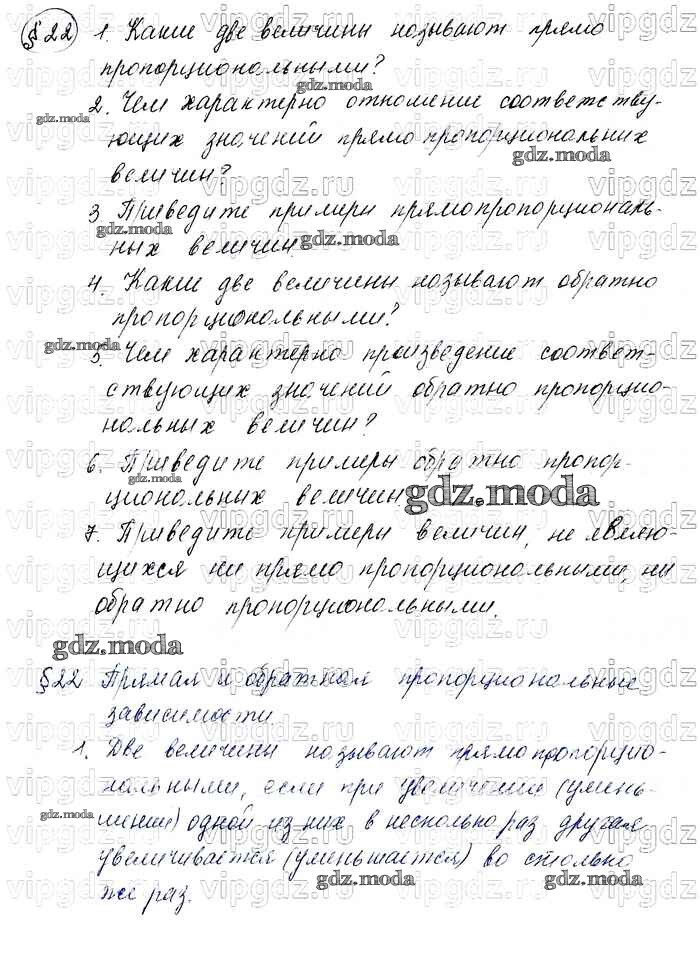 §22 1. Какие две величины называют прямо
пропорциональными?
gdz.moda
2. Чем характерно отношение соответству-
gdz.moda
ющих значений прямо пропорциональных
gdz.moda
величин?
3. Приведите примеры прямо пропорциональ-
gdz.moda
ных величин.
gdz.moda
4. Какие две величины называют обратно
пропорциональными?
gdz.moda
5. Чем характерно произведение соответ-
ствующих значений обратно пропорцио-
нальных величин?
6. Приведите примеры обратно пропор-
gdz.moda
циональных величин
gdz.moda
7. Приведите примеры величин, не являю-
щихся ни прямо пропорциональными, ни
обратно пропорциональными.
gdz.moda
§22 Прямая и обратная пропорциональные
зависимости
1. Две величины называют прямо пропорцио-
нальными, если при увеличении (умень-
gdz.moda
шении) одной из них в несколько раз другая
увеличивается (уменьшается) во столько
gdz.moda
gdz.moda
же раз.